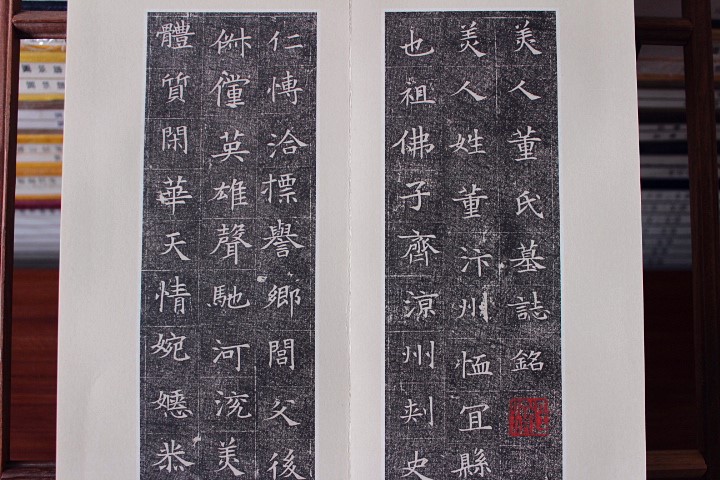 美人董氏墓誌銘
美人姓董汴州恤冝縣
也祖佛子齊涼州刾史
仁慱洽摽譽鄉閭父後
俶儻英雄聲馳河渷美
體質閑華天情婉嫕恭